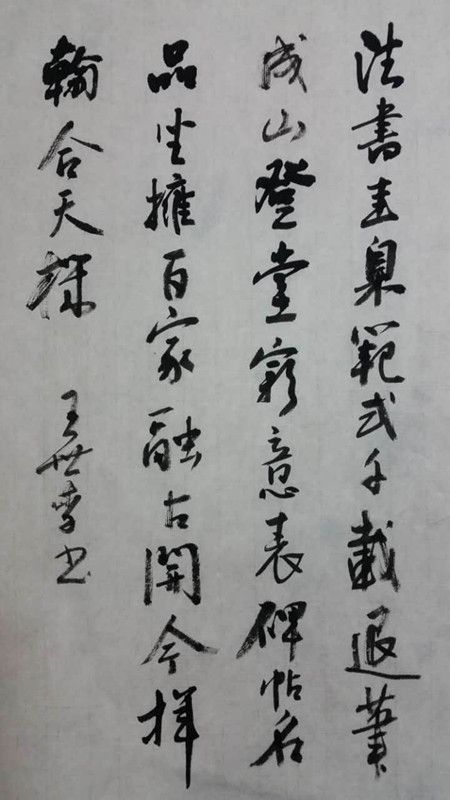 法書圭臬範式千載退筆
成山登堂窮意表碑帖名
品坐擁百家融古開今揮
翰合天
王世書